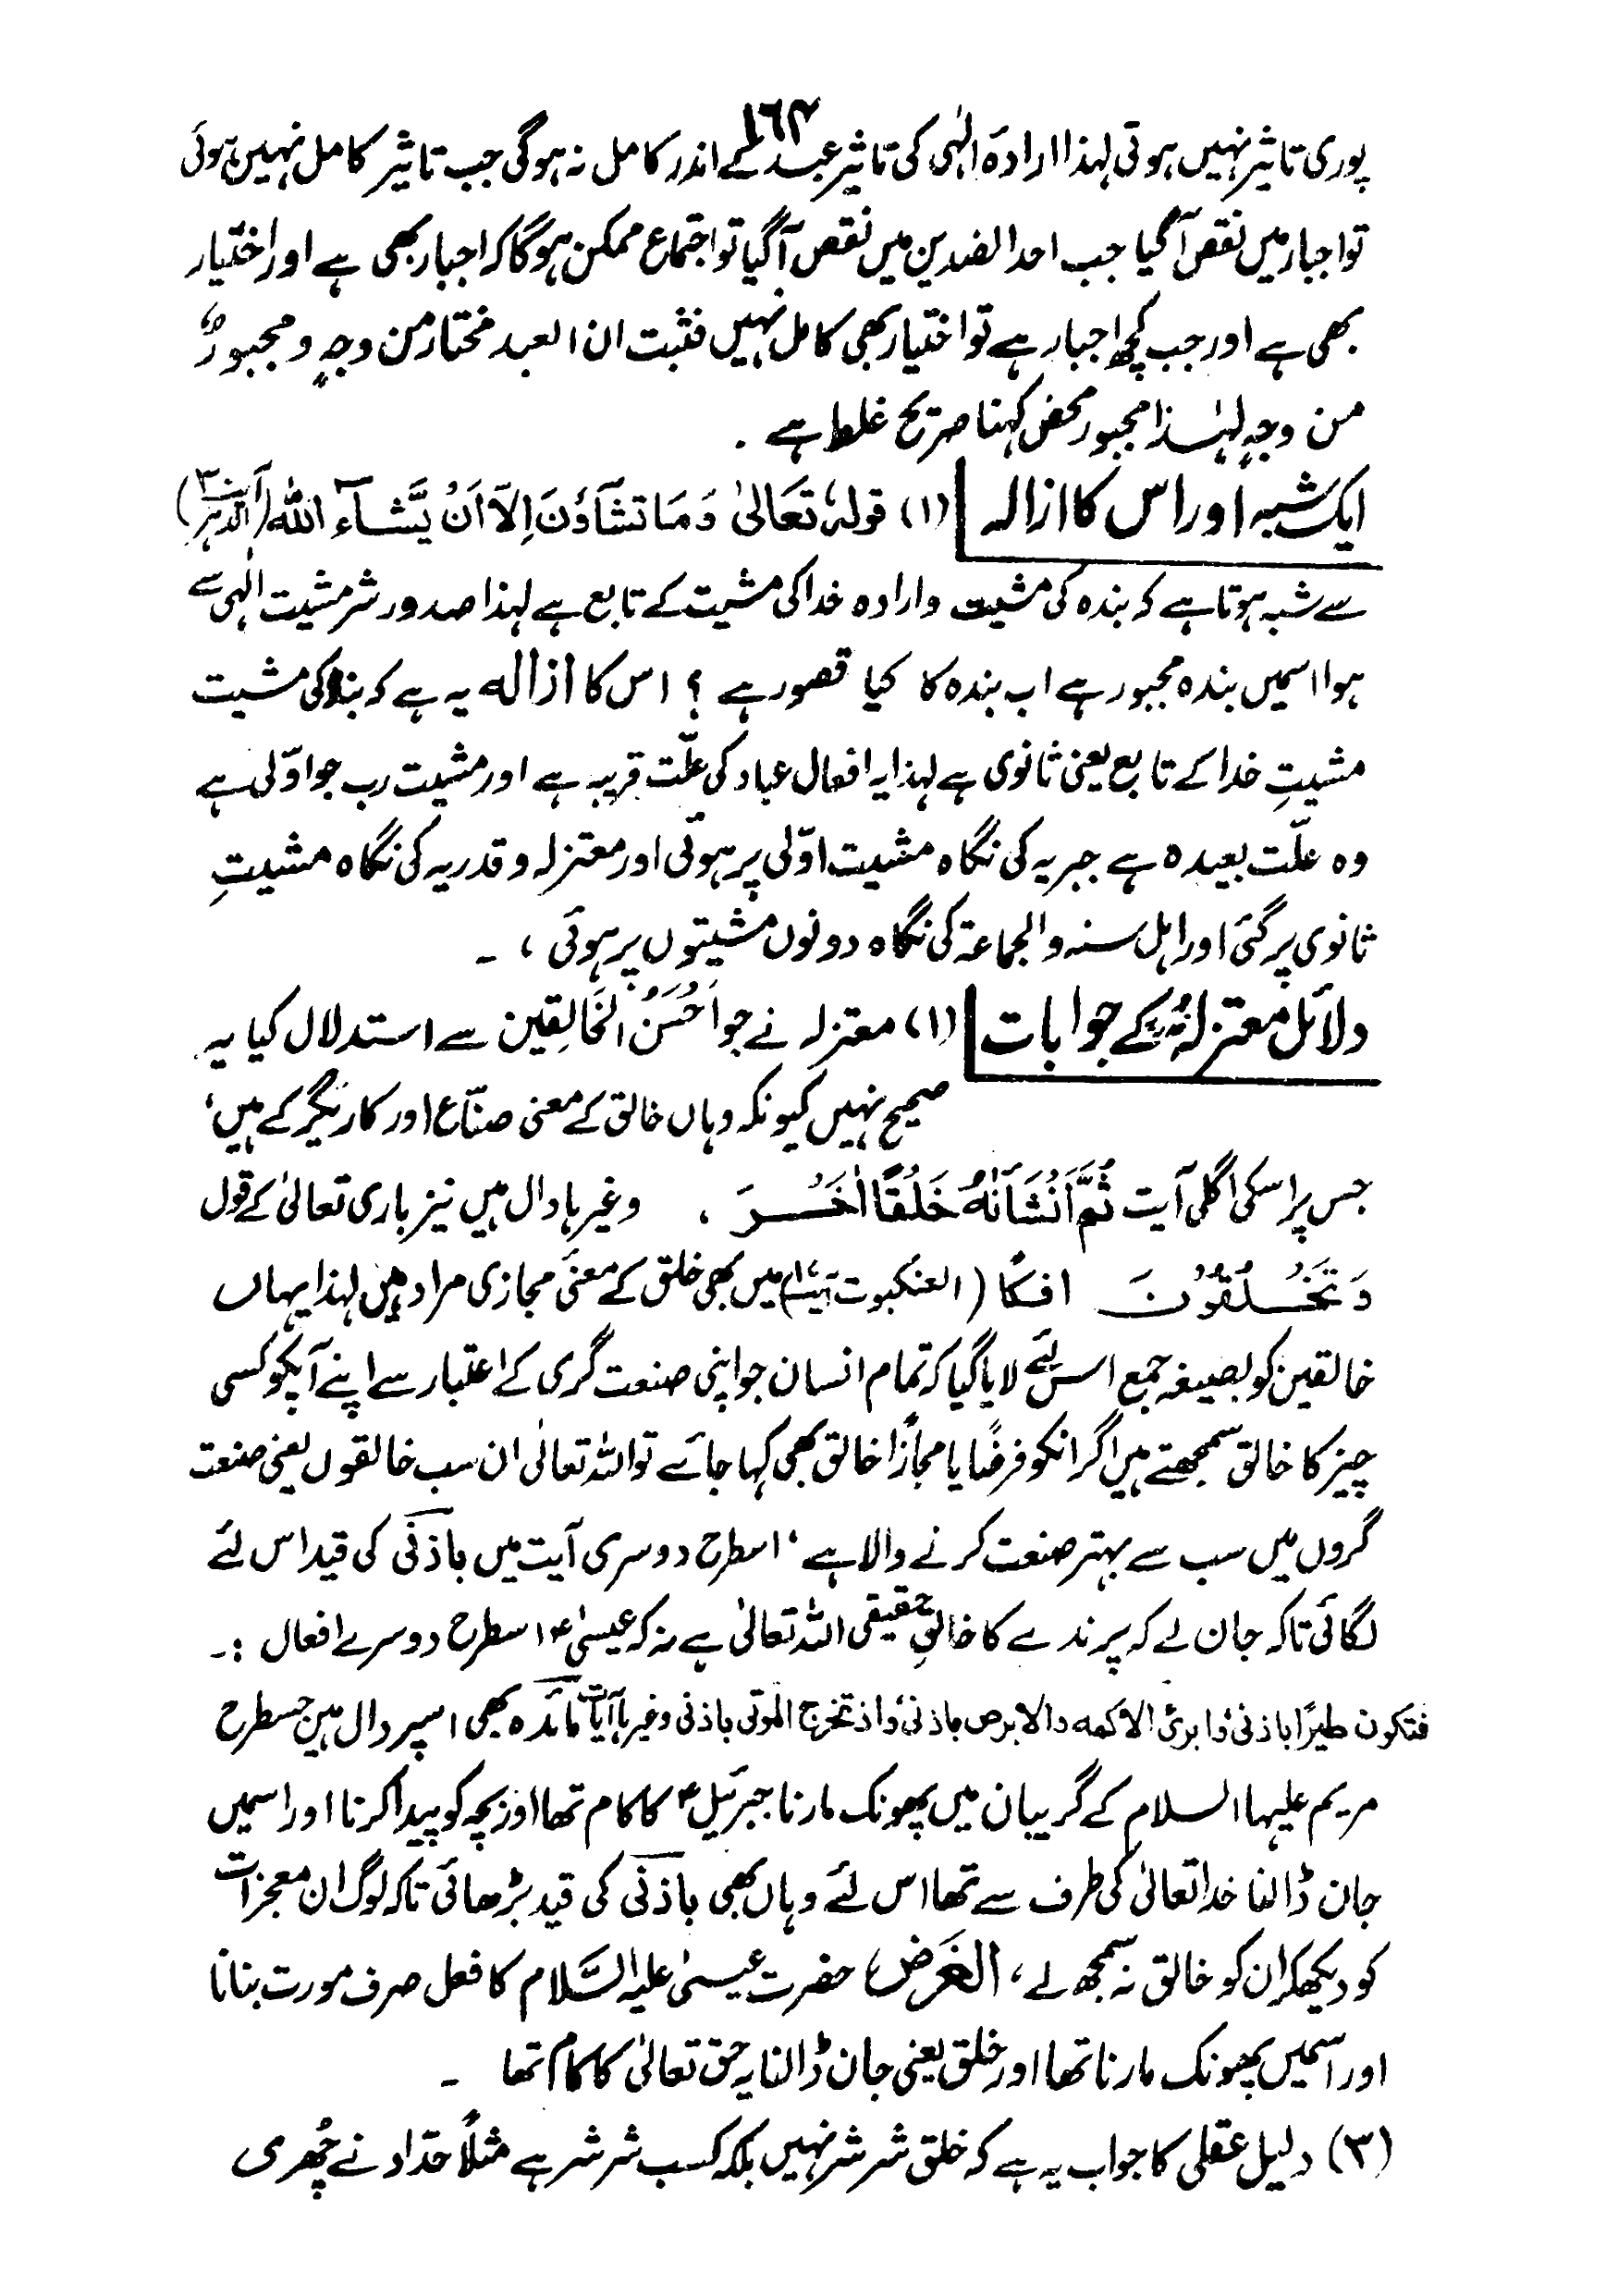 ۱۶۴
پوری تاثیر نہیں ہوتی لہذا ارادۂ الٰہی کی تاثیر عبد کے اندر کامل نہ ہوگی جب تاثیر کامل نہیں ہوئی
تو اجبار میں نقص آگیا جب احد الضدین میں نقص آگیا تو اجتماع ممکن ہوگا کہ اجبار بھی ہے اور اختیار
بھی ہے اور جب کچھ اجبار ہے تو اختیار بھی کامل نہیں فثبت ان العبد مختار من وجہٍ و مجبورٌ
من وجہٍ لہٰذا مجبور محض کہنا صریح غلط ہے ۔
ایک شبہ اور اس کا ازالہ (۱) قولہٗ تَعَالیٰ وَمَا تَشَآؤُنَ اِلَّا اَنْ یَّشَآءَ اللّٰہُ (الدہر آیت ۳۰)
سے شبہ ہوتا ہے کہ بندہ کی مشیت وارادہ خدا کی مشیت کے تابع ہے لہذا صدور شر مشیت الٰہی سے
ہوا اسمیں بندہ مجبور ہے اب بندہ کا کیا قصور ہے ؟ اس کا ازالہ یہ ہے کہ بندہ کی مشیت
مشیتِ خدا کے تابع یعنی ثانوی ہے لہذا یہ افعال عباد کی علّت قریبہ ہے اور مشیت رب جو اوّلی ہے
وہ علّت بعیدہ ہے جبریہ کی نگاہ مشیت اوّلی پر ہوئی اور معتزلہ و قدریہ کی نگاہ مشیتِ
ثانوی پر گئی اور اہل سنہ والجماعۃ کی نگاہ دونوں مشیتوں پر ہوئی ، ۔
دلائل معتزلہ کے جوابات (۱) معتزلہ نے جو اَحْسَنُ الْخَالِقِین سے استدلال کیا یہ
صحیح نہیں کیونکہ وہاں خالق کے معنی صنّاع اور کاریگر کے ہیں ،
جس پر اسکی اگلی آیت ثُمَّ اَنْشَأْنَاهُ خَلْقًا اٰخَرَ ، وغیرہا دال ہیں نیز باری تعالیٰ کے قول
وَتَخْلُقُوْنَ افکًا (العنکبوت آیت ۱۷) میں بھی خلق کے معنیٔ مجازی مراد ہیں لہذا یہاں
خالقین کو بصیغہ جمع اس لئے لایا گیا کہ تمام انسان جو اپنی صنعت گری کے اعتبار سے اپنے آپکو کسی
چیز کا خالق سمجھتے ہیں اگر انکو فرضًا یا مجازًا خالق بھی کہا جائے تو اللہ تعالٰی ان سب خالقوں یعنی صنعت
گروں میں سب سے بہتر صنعت کرنے والا ہے ، اسطرح دوسری آیت میں باذنی کی قید اس لئے
لگائی تاکہ جان لے کہ پرندے کا خالقِ حقیقی اللہ تعالیٰ ہے نہ کہ عیسیٰ؏ اسطرح دوسرے افعال :۔
فتکون طیرًا باذنی وابرئ الاکمہ والابرص باذنی واذ تخرج الموتی باذنی وغیرہا آیات مائدہ بھی اسپر دال ہیں جسطرح
مریم علیہا السلام کے گریبان میں پھونک مارنا جبرئیل؏ کا کام تھا اور بچہ کو پیدا کرنا اور اسمیں
جان ڈالنا خدا تعالیٰ کی طرف سے تھا اس لئے وہاں بھی باذنی کی قید بڑھائی تاکہ لوگ ان معجزات
کو دیکھکر ان کو خالق نہ سمجھ لے ، الغَرَض حضرت عیسیٰ علیہ السَّلام کا فعل صرف مورت بنانا
اور اسمیں پھونک مارنا تھا اور خلق یعنی جان ڈالنا یہ حق تعالیٰ کا کام تھا ۔
(۳) دلیل عقلی کا جواب یہ ہے کہ خلق شر شر نہیں بلکہ کسب شر شر ہے مثلًا حدّاد نے چُھری